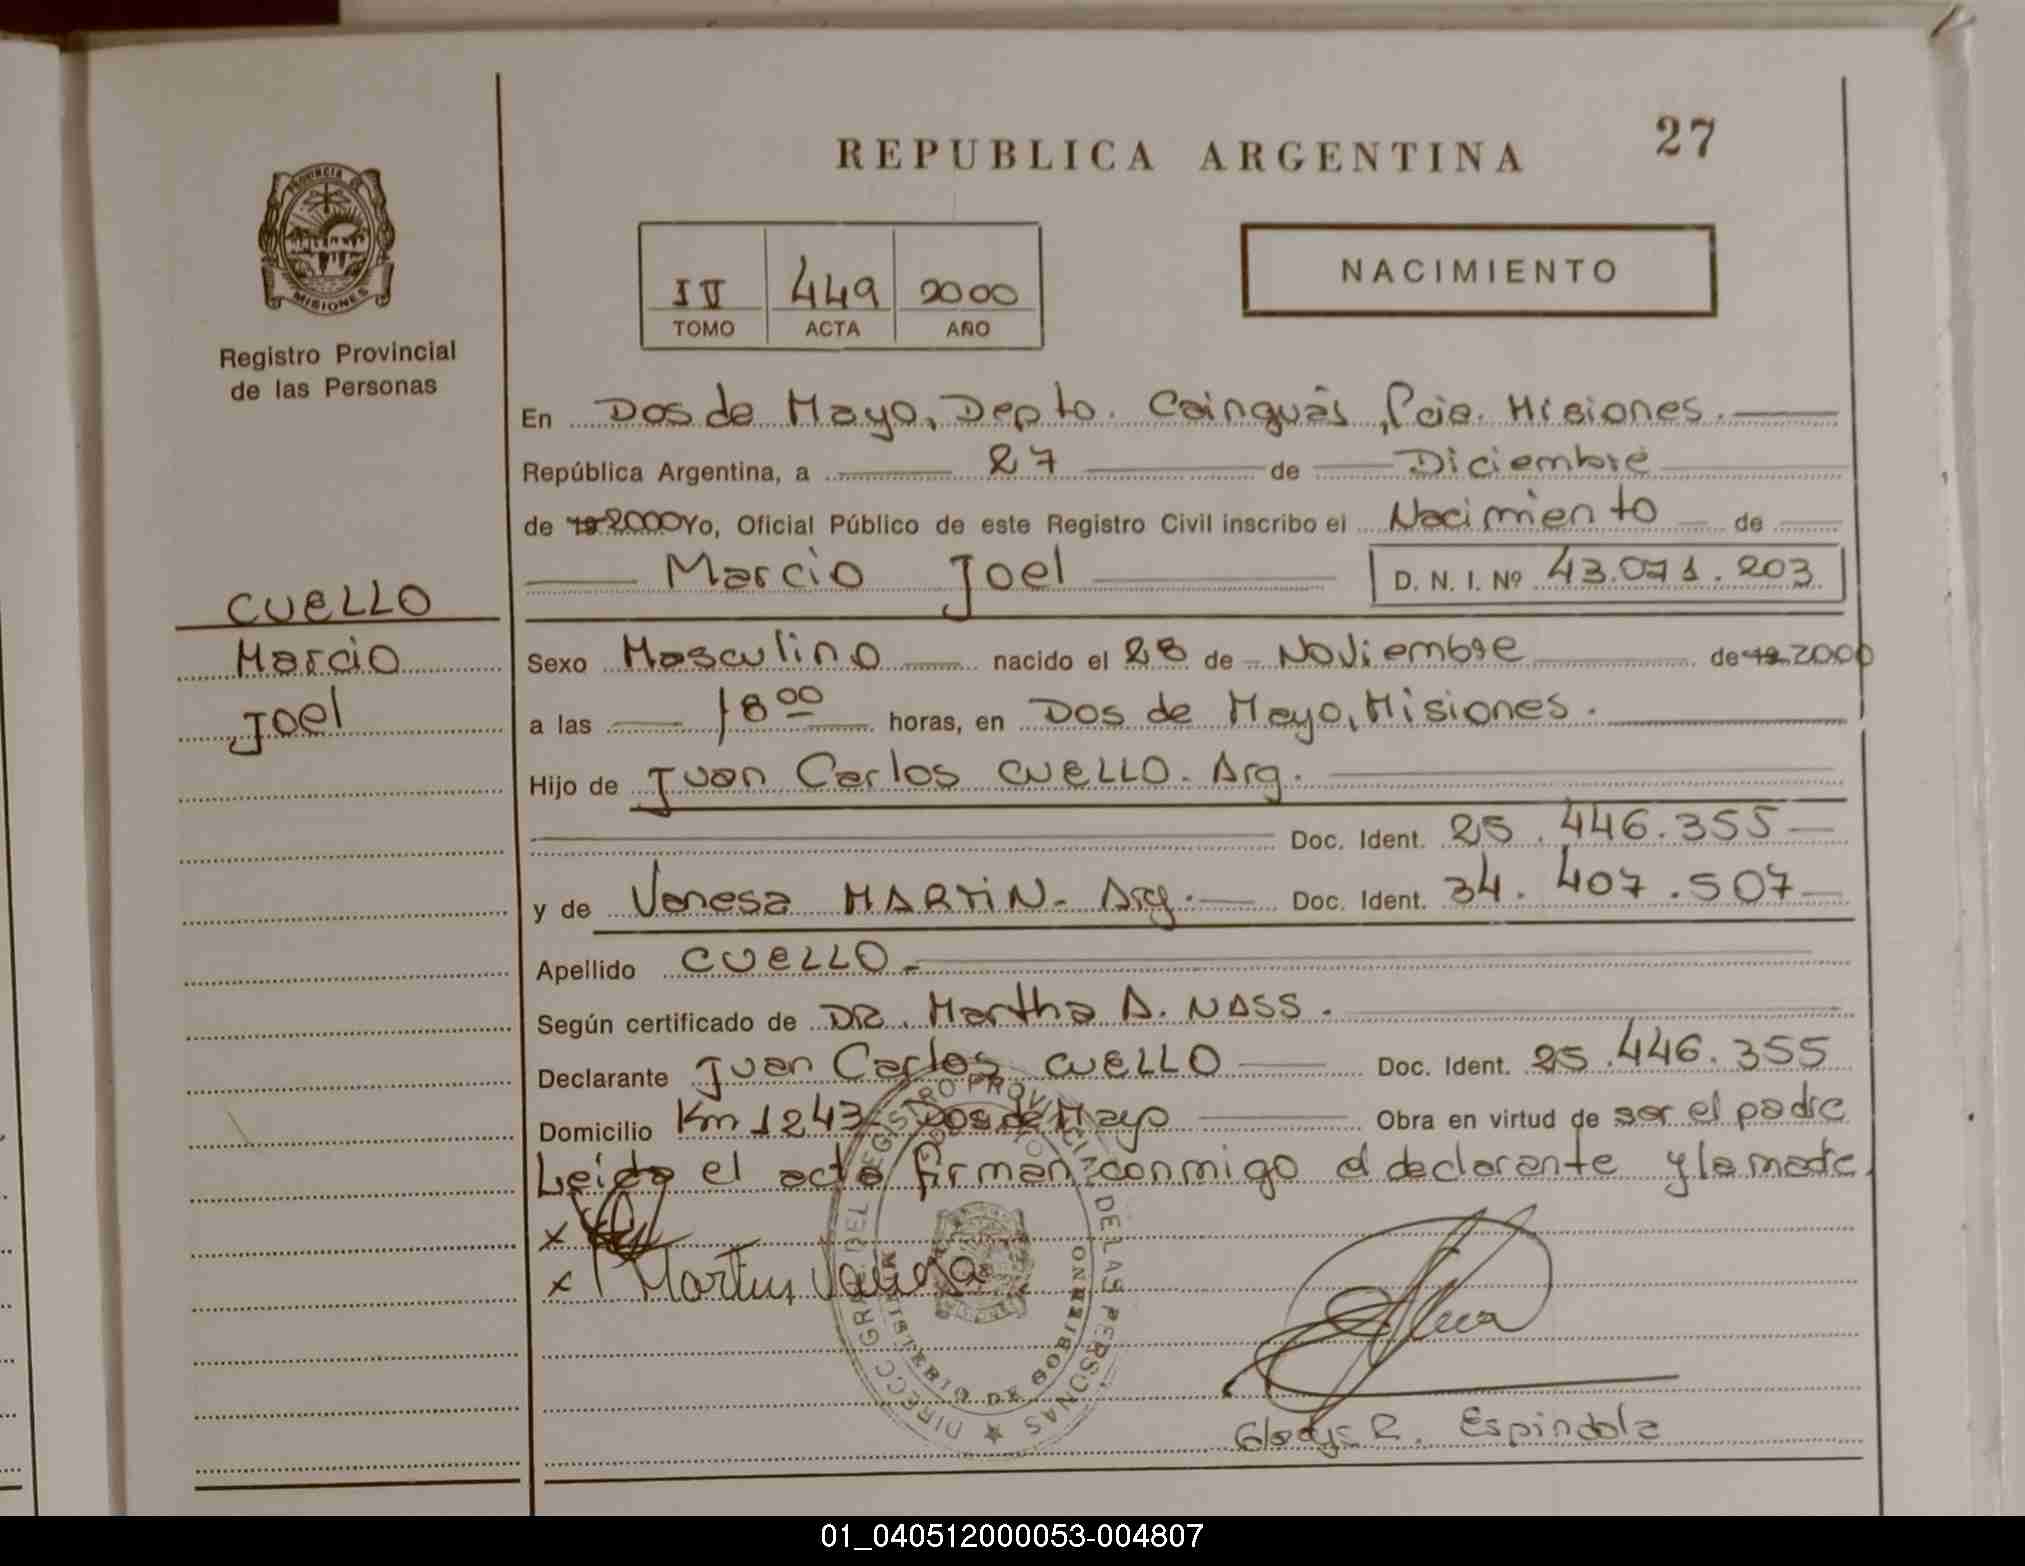 REPUBLICA ARGENTINA 27
PROVINCIA DE
MISIONES
Registro Provincial
de las Personas
II 449 2000
TOMO ACTA AÑO
NACIMIENTO
En Dos de Mayo, Depto. Cainguás, Pcia. Misiones.
República Argentina, a 27 de Diciembre
de 19 2000 Yo, Oficial Público de este Registro Civil inscribo el Nacimiento de
Marcio Joel D. N. I. Nº 43.071.203
CUELLO
Marcio
Joel
Sexo Masculino nacido el 28 de Noviembre de 19 2000
a las 18 00 horas, en Dos de Mayo, Misiones.
Hijo de Juan Carlos CUELLO. Arg.
Doc. Ident. 25.446.355
y de Vanesa MARTIN. Arg. Doc. Ident. 34.407.507
Apellido CUELLO.
Según certificado de DR. Martha A. NASS.
Declarante Juan Carlos CUELLO Doc. Ident. 25.446.355
Domicilio Km 1243 Dos de Mayo Obra en virtud de ser el padre
Leida el acta firman conmigo el declarante y la madre.
x
x Martin Vanesa
DIRECC GRAL DEL REGISTRO PROVINCIAL DE LAS PERSONAS
MINISTERIO DE GOBIERNO
Gladys R. Espindola
01_040512000053-004807